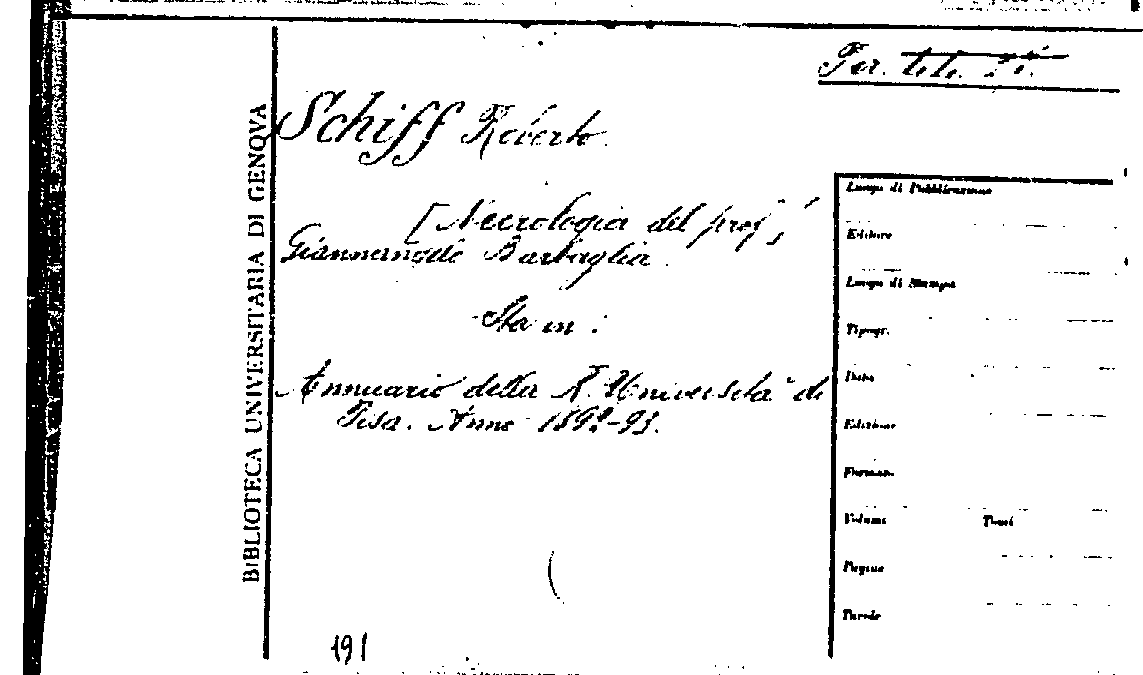 Schiff Roberto
[Necrologia del prof]
Giannantonio Barbaglia
Sta in :
Annuario della R. Università di
Pisa. Anno 1892-93.
191
BIBLIOTECA UNIVERSITARIA DI GENOVA
Luogo di Pubblicazione
Editore
Luogo di Stampa
Tipogr.
Data
Edizione
Formato
Volumi Tomi
Pagine
Tavole